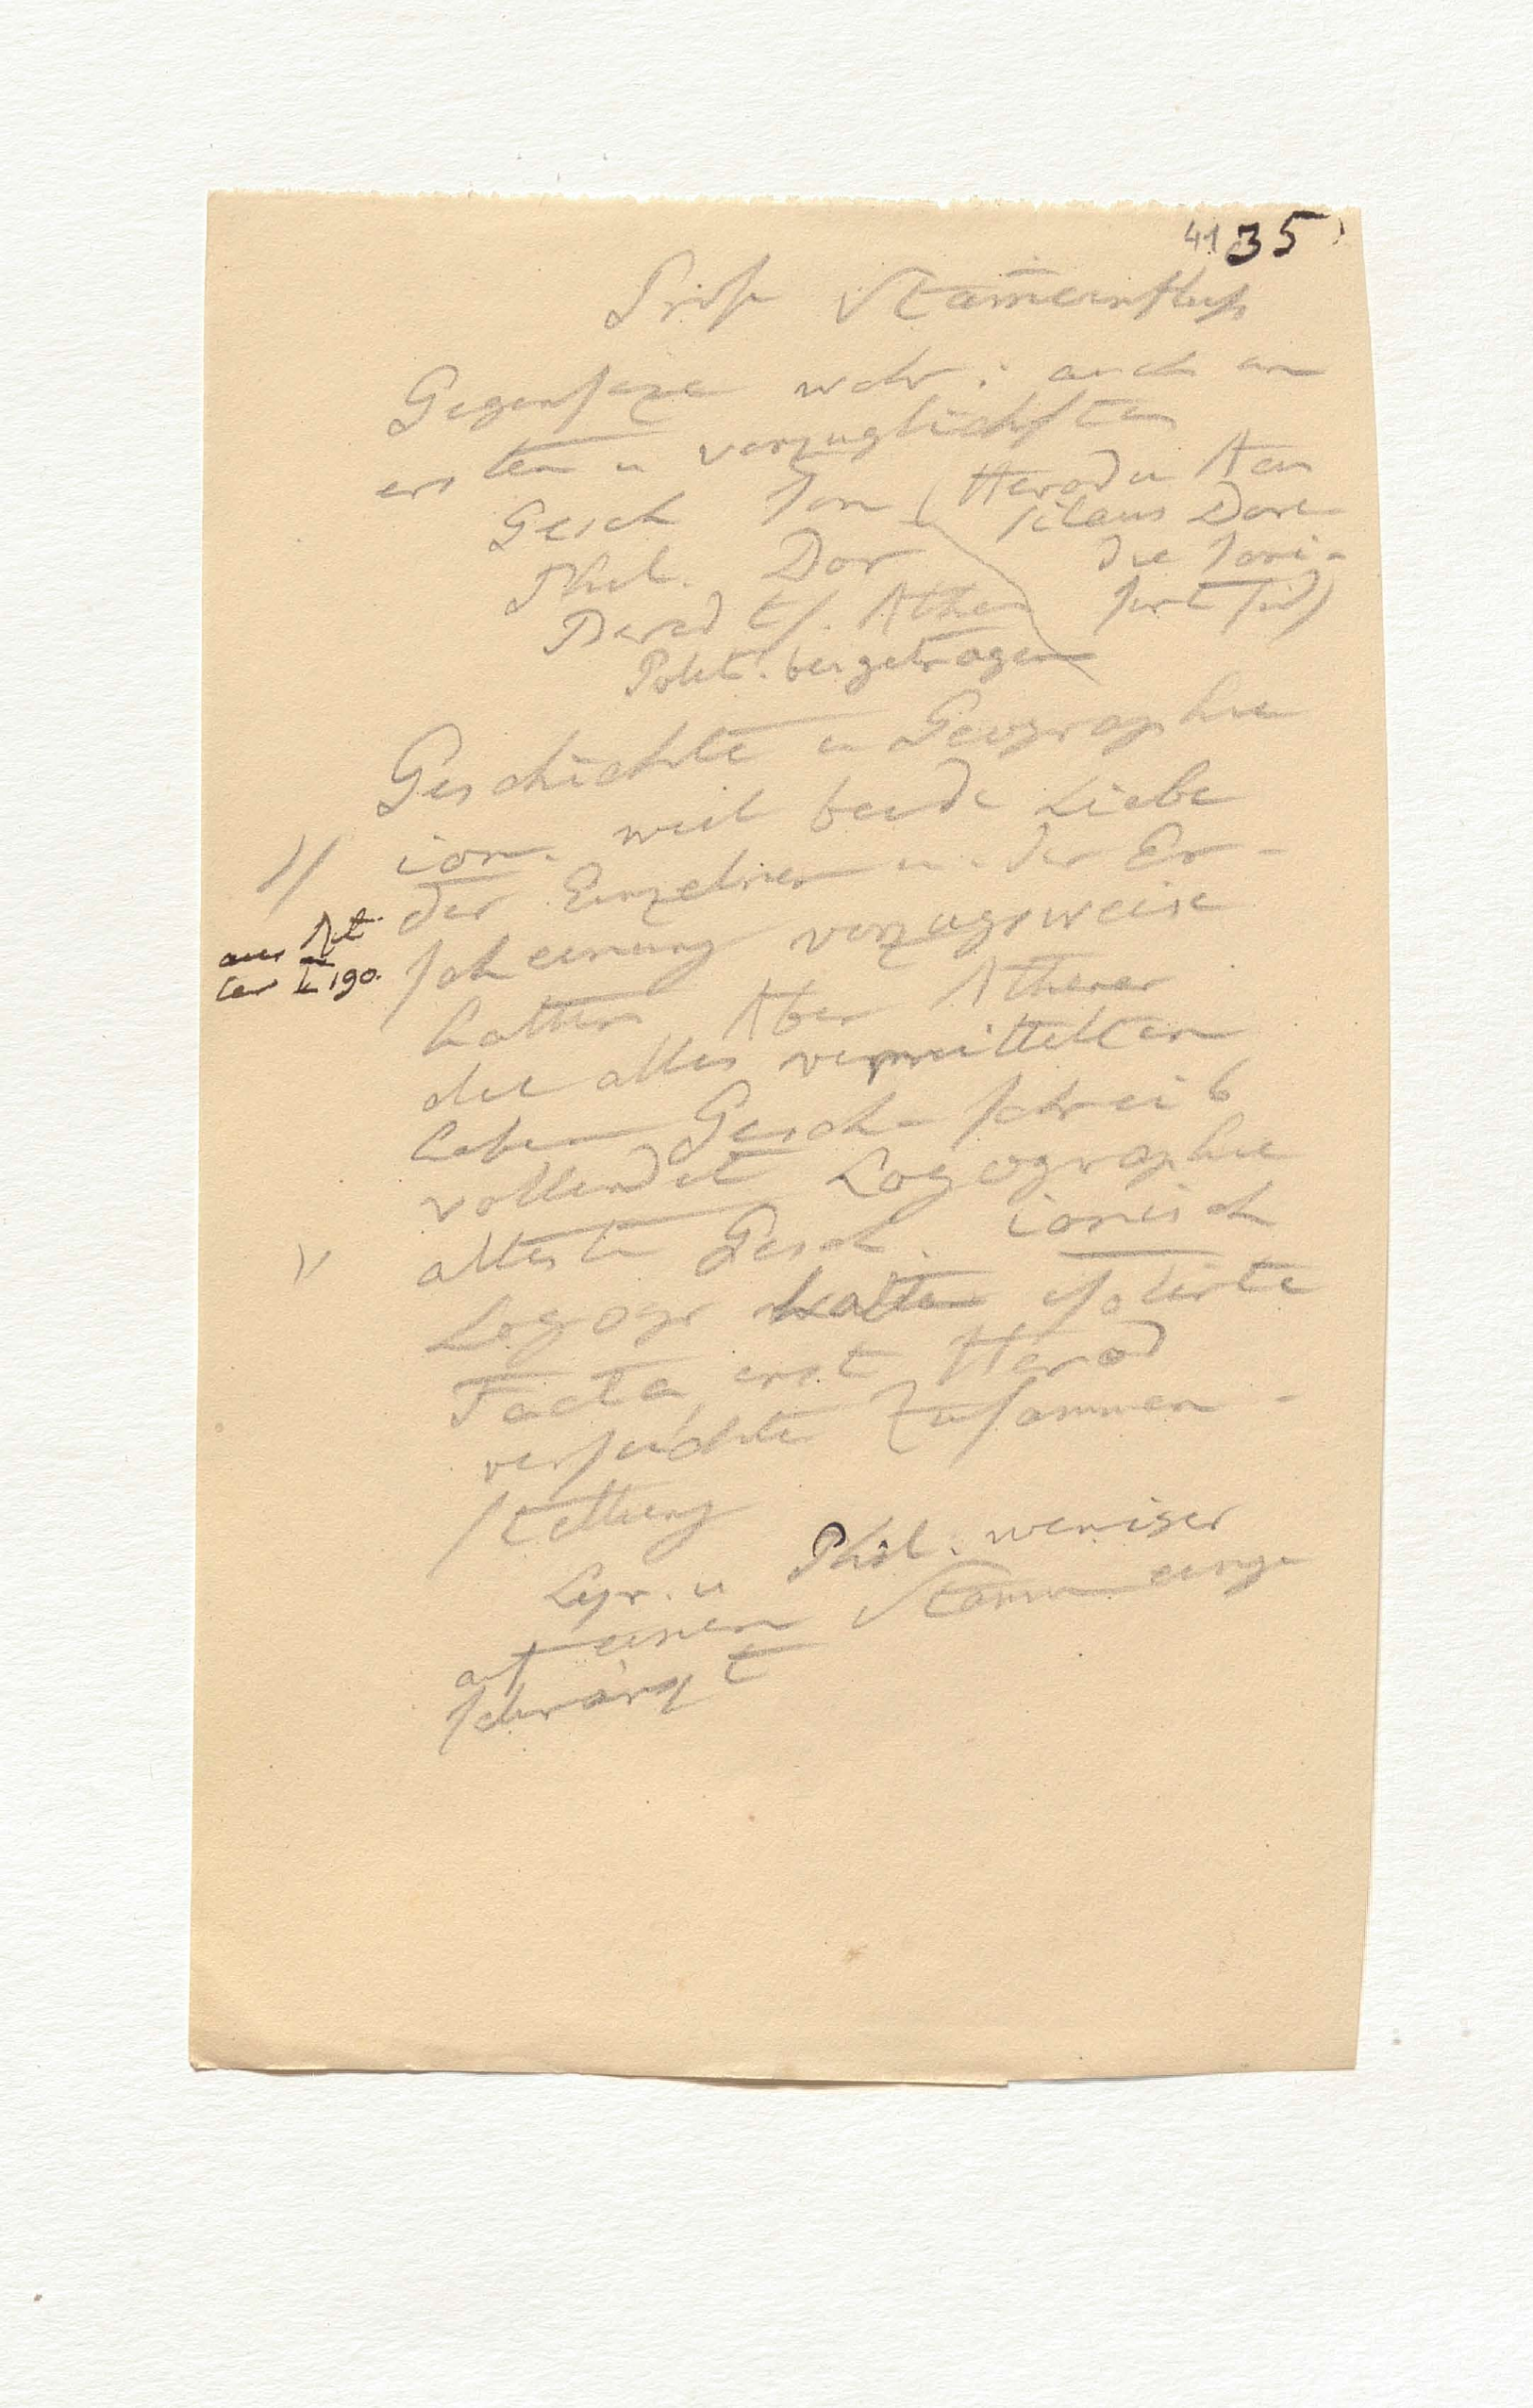 41 35
Prosa Stammeinfluß
Gegensaze wahr: auch am
ersten u vorzüglichsten
Gesch Ion (Herod u
silaus Dore
Phil. Dor die Ioni-
sirt sind)
Bered ts. Athen
Polit. beigetragen
Geschichte u Geographie
ion. weil beide Liebe
der Einzelnen u. der Er-
scheinung vorzugsweise
aus Rit
ter I 190.
hatten Aber Athener
die alles vermittelten
haben Gesch-schreib
vollendet Logographie
älteste Gesch. ionisch
Logogr hatten isolirte
Facta, erst Herod
versuchte Zusammen-
stellung
Lyr. u Phil. weniger
auf einen Stamm einge
schränkt